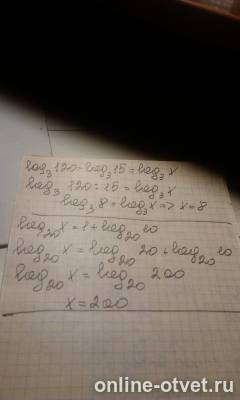 log₃ 120 - log₃ 15 = log₃ x
log₃ 120 : 15 = log₃ x
log₃ 8 = log₃ x => x = 8
log₂₀ x = 1 + log₂₀ 10
log₂₀ x = log₂₀ 20 + log₂₀ 10
log₂₀ x = log₂₀ 200
x = 200
online-otvet.ru